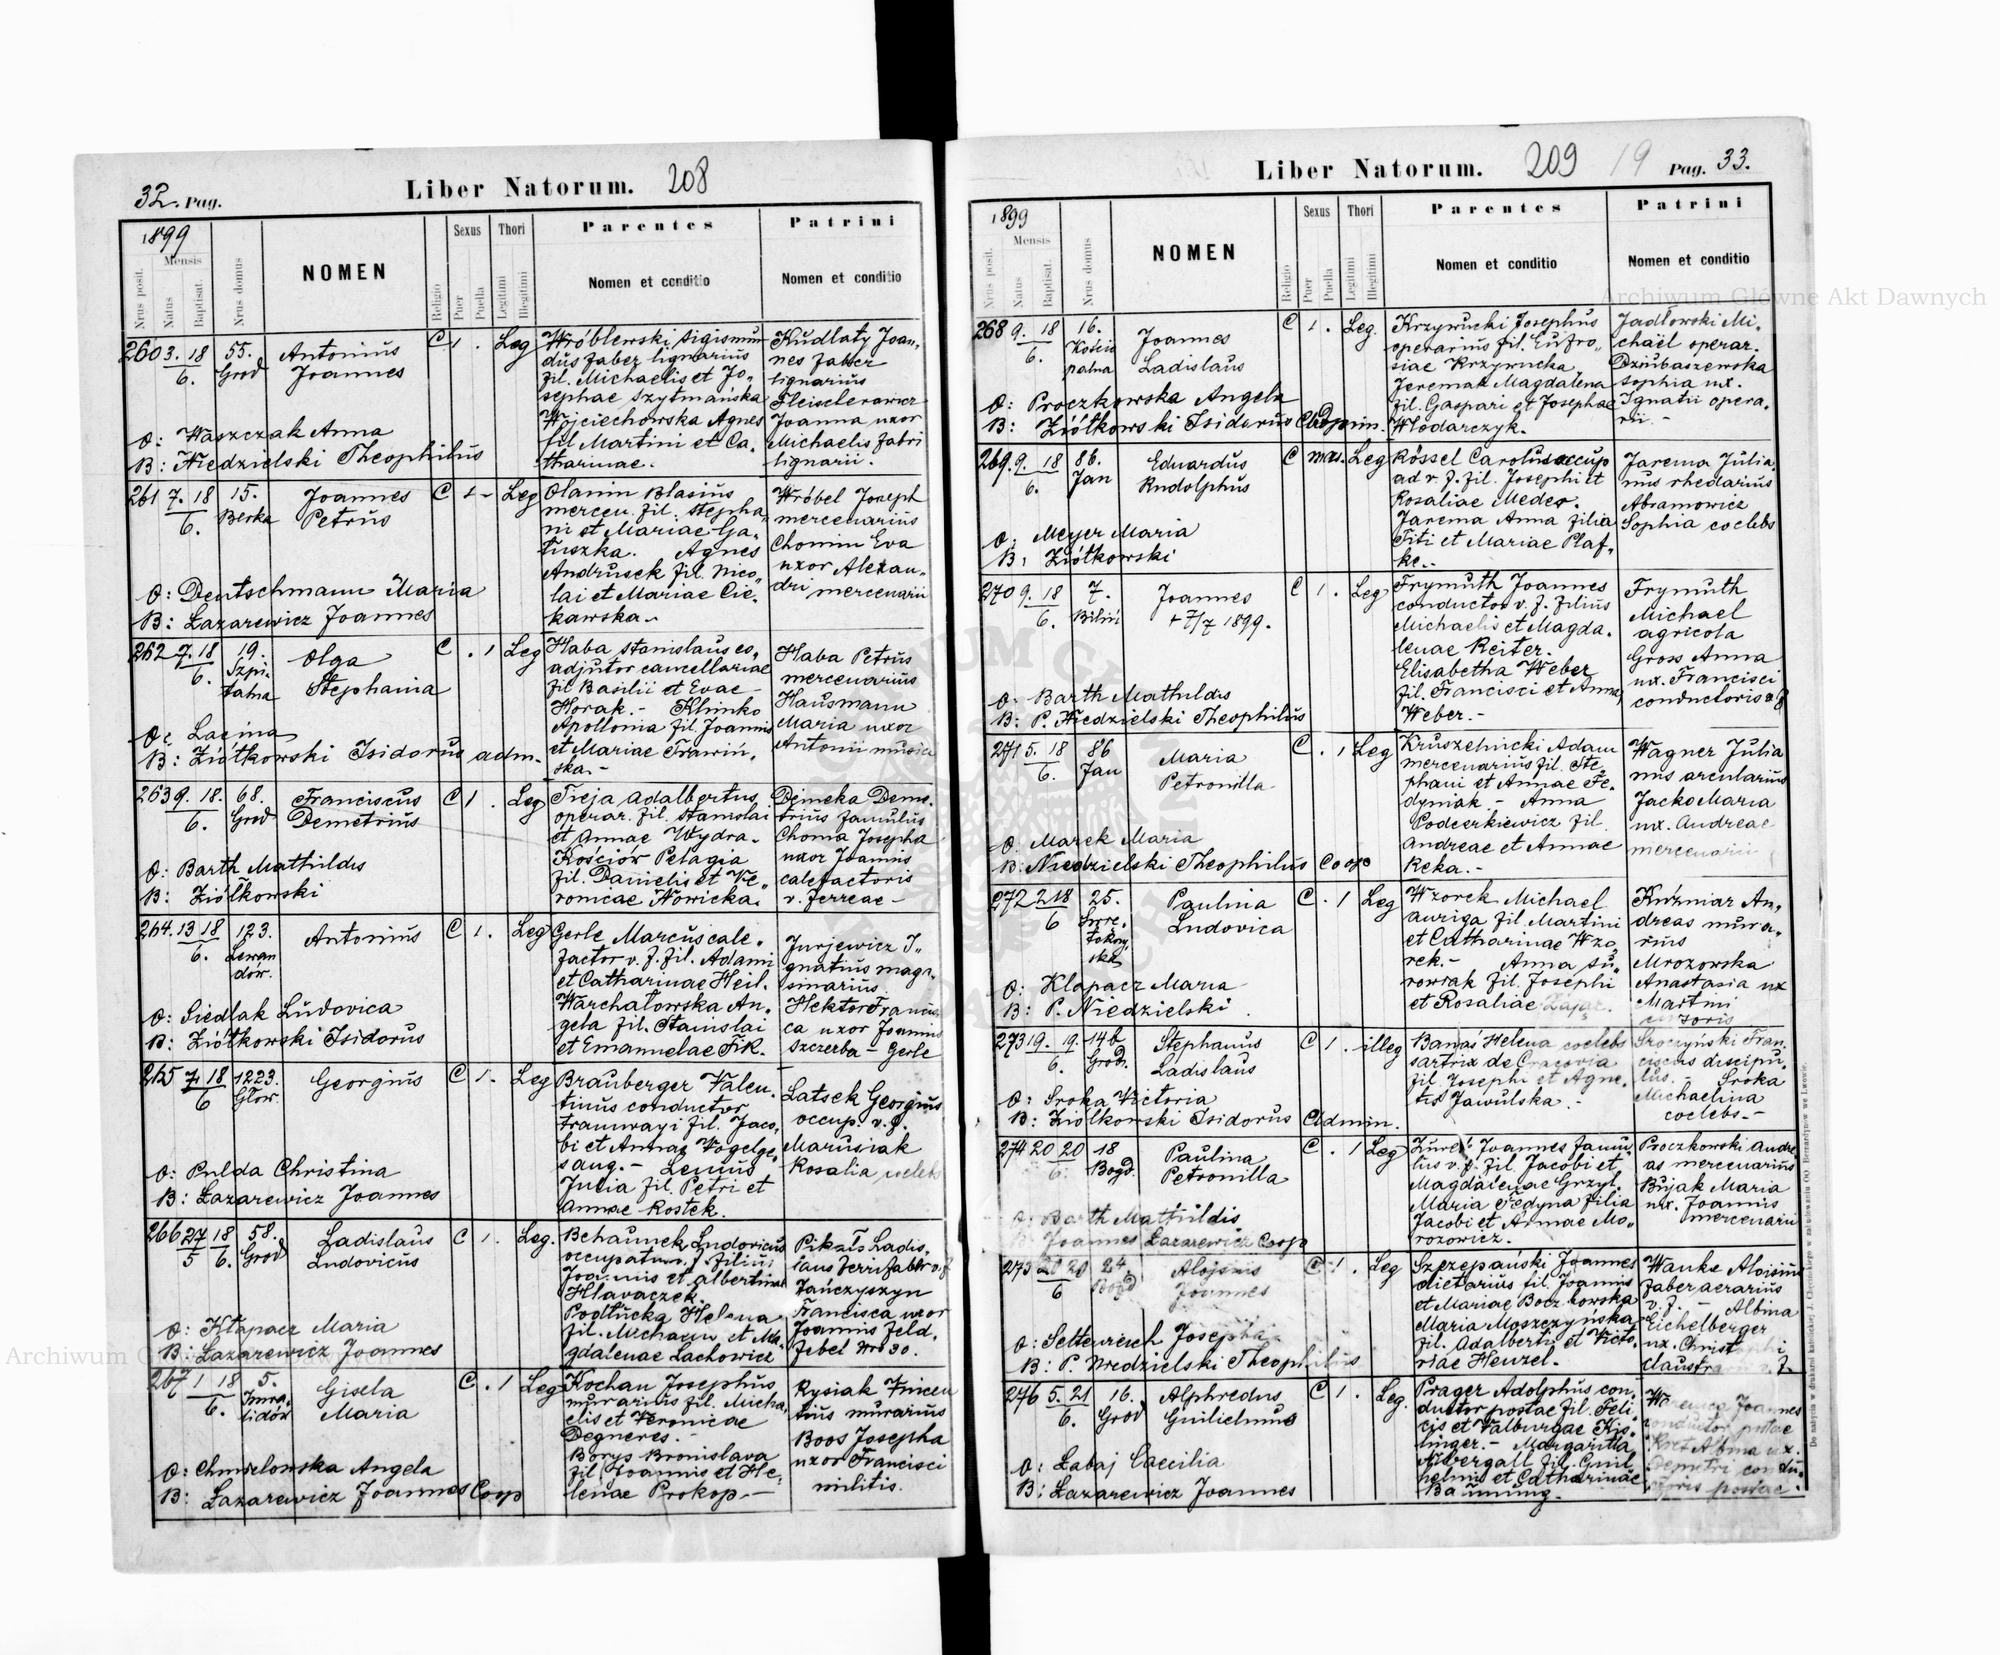 32. Pag.
Liber Natorum. 208
1899
Nrus posit.
Mensis
Natus
Baptisat.
Nrus domus
NOMEN
Religio
Sexus
Puer
Puella
Thori
Legitimi
Illegitimi
Parentes
Nomen et conditio
Patrini
Nomen et conditio
260 3. 18 55. Antonius C 1 . Leg Wróblewski Sigismun Kudlaty Joan-
6. Grod Joannes dus faber lignarius nes faber
fil. Michaelis et Jo- lignarius
sephae Szytmańska Fleischerowicz
Wojciechowska Agnes Joanna uxor
O: Waszczak Anna fil Martini et Ca- Michaelis fabri
B: Niedzielski Theophilus tharinae. lignarii.
261 7. 18 15. Joannes C 1 - Leg Olanin Blasius Wróbel Joseph
6. Berka Petrus mercen. fil. Stepha- mercenarius
ni et Mariae Ga- Chomin Eva
łuszka. Agnes uxor Alexan-
Andrusek fil. Nico- dri mercenarii
O: Deutschmann Maria lai et Mariae Cie-
B: Łazarewicz Joannes kawska.
262 7. 18 19. Olga C . 1 Leg Haba Stanislaus co- Haba Petrus
6. Szpi- Stephania adjutor cancellariae mercenarius
talna fil Basilii et Evae Hausmann
Horak. - Klimko Maria uxor
O: Lacina Apollonia fil. Joannis Antoni
B: Ziółkowski Isidorus adm. et Mariae Trawiń-
ska.-
263 9. 18. 68. Franciscus C 1 . Leg Treja Adalbertus Dimeka Deme-
6. Grod Demetrius operar. fil. Stanislai trius famulus
et Annae Wydra. Choma Josepha
Kościów Pelagia uxor Joannis
O: Barth Mathildis fil. Danielis et Ve- calefactoris
B: Ziółkowski ronicae Nowicka. v. ferreae -
264. 13 18 123. Antonius C 1. Leg Gerle Marcus cale- Jurjewicz I-
6. Lewan factor v. f. fil. Adami gnatius maga-
dów. et Catharinae Heil. sinarius
Warchałowska An- Hektor Francis-
O: Siedlak Ludovica gela fil. Stanislai ca uxor Joannis
B: Ziółkowski Isidorus et Emanuelae Fik. Szczerba - Gerle
265 7. 18 1223. Georgius C 1. Leg Brauberger Valen- Latsek Georgius
6 Głów. tinus conductor occup. v. f.
tramwayi fil. Jaco- Marusiak
bi et Annae Vogelge- Rosalia coelebs
O: Pulda Christina sang. - Lenius
B: Łazarewicz Joannes Julia fil. Petri et
Annae Rostek.
266 27 18 58. Ladislaus C 1. Leg. Behaunek Ludovicus Ladis-
5 6. Grod Ludovicus occupatus v. f. filius laus ferri faber v. f
Joannis et Albertinae Tańczyszyn
Hlavaczek. Francisca uxor
O: Kłapacz Maria Podłucka Helena Joannis Feld.
B: Łazarewicz Joannes fil. Michaelis et Ma- febel Nro 30.
gdalenae Lachowicz
267 1 18 5. Gisela C . 1 Leg Kochan Josephus Rysiak Vincen
6. Inwa- Maria murarius fil. Micha- tius murarius
lidów elis et Veronicae Boos Josepha
Degneres. - uxor Francisci
O: Chmielowska Angela Borys Bronislava militis.
B: Łazarewicz Joannes Coop fil. Joannis et He-
lenae Prokop. -
Liber Natorum. 209 19 Pag. 33.
1899
Nrus posit.
Mensis
Natus
Baptisat.
Nrus domus
NOMEN
Religio
Sexus
Puer
Puella
Thori
Legitimi
Illegitimi
Parentes
Nomen et conditio
Patrini
Nomen et conditio
268 9. 18 16. Joannes C 1. Leg. Krzywucki Josephus Jadłowski Mi-
6. Kościo Ladislaus operarius fil. Eufro- chael operar.
palna siae Krzywucka Dziubaszewska
Jeremak Magdalena Sophia ux.
O: Proczkowska Angela fil. Gaspari et Josephae Ignatii opera-
B: Ziółkowski Isidorus Włodarczyk. rii. -
269. 9. 18 86. Eduardus C Leg Rössel Carolus occup Jarema Julia-
6. Jan Rudolphus ad v. f. fil. Josephi et nus rhedarius
Rosaliae Meder. Abramowicz
Jarema Anna filia Sophia coelebs
O: Meyer Maria Titi et Mariae Plaf-
B: Ziółkowski ke.
270 9. 18 7. Joannes C 1 . Leg Frymuth Joannes Frymuth
6. + 7/7 1899. conductor v. f. filius Michael
Michaelis et Magda- agricola
lenae Reiter. Gross Anna
Elisabetha Weber ux. Francisci
O: Barth Mathildis fil. Francisci et Anna conductoris v. f
B: P. Niedzielski Theophilus Weber. -
271 5. 18 86 Maria C . 1 Leg Kruszelnicki Adam Wagner Julia
6. Jan Petronilla mercenarius fil. Ste- nus arcularius
phani et Annae Fe- Jacko Maria
dyniak. - Anna ux. Andreae
O: Marek Maria Podcerkiewicz fil. mercenarii
B: Niedzielski Theophilus Coop Andreae et Annae
Reka. -
272 2 18 25. Paulina C . 1 Leg Wzorek Michael Kuźniar An-
6 Ludovica auriga fil. Martini dreas mura-
et Catharinae Wzo- rius
rek. - Anna Su- Mrozowska
O: Klapacz Maria rowiak fil. Josephi Anastasia ux
B: P. Niedzielski et Rosaliae Zając. Martini
273 19. 19. 14b Stephanus C 1 . illeg Banaś Helena coelebs Fran-
6. Grod. Ladislaus sartrix de Cracovia ciscus discipu-
fil. Josephi et Agne- lus. Sroka
O: Sroka Victoria tis Jawulska. - Michaelina
B: Ziółkowski Isidorus Admin. coelebs. -
274 20 20 18 Paulina C . 1 Leg Żurek Joannes famu- Proczkowski Andre
6. Bogd. Petronilla lus v. f. fil Jacobi et as mercenarius
Magdalenae Grzyl. Bujak Maria
O: Barth Mathildis Maria Fedyna filia ux. Joannis
B: Joannes Łazarewicz Coop Jacobi et Annae Mo- mercenarii
rozowicz.
275 20 20 24. Aloisius C 1 . Leg Szczepański Joannes Wanke Aloisius
6 Bogd Joannes dietarius fil. Joannis faber aerarius
et Mariae Boczkowska v. f. - Albina
Maria Moszczyńska Eichelberger
O: Josepha fil. Adalberti et Victo- ux. Christophi
B: P. Niedzielski Theophilus riae Henzel. - claustrarii v. f.
276 5. 21 16. Alphredus C 1. Leg. Prager Adolphus con- Joannes
6. Grod Guilielmus ductor postae fil. Feli- conductor postae
cis et Valburgae Kis- Albina ux.
linger. - Margaritta Demetri condu-
O: Łabaj Caecilia Albergall fil. Guil- ctoris postae.
B: Łazarewicz Joannes helmi et Catharinae
Baumung.
Do nabycia w drukarni katolickiej J. Chęcińskiego w zabudowaniu OO. Bernardynów we Lwowie.
Archiwum Główne Akt Dawnych
Archiwum Główne Akt Dawnych